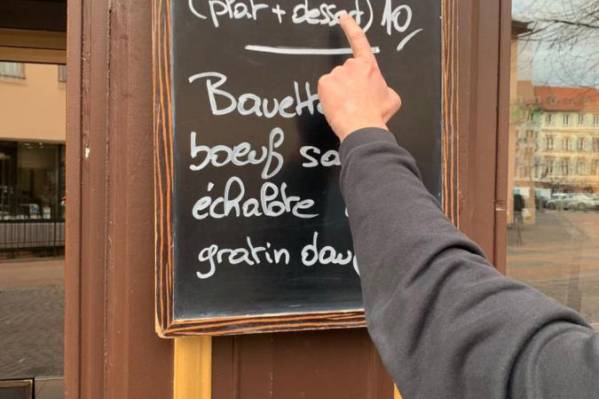 (plat + dessert) 10
Bavett
boeuf sa
échalote
gratin dau